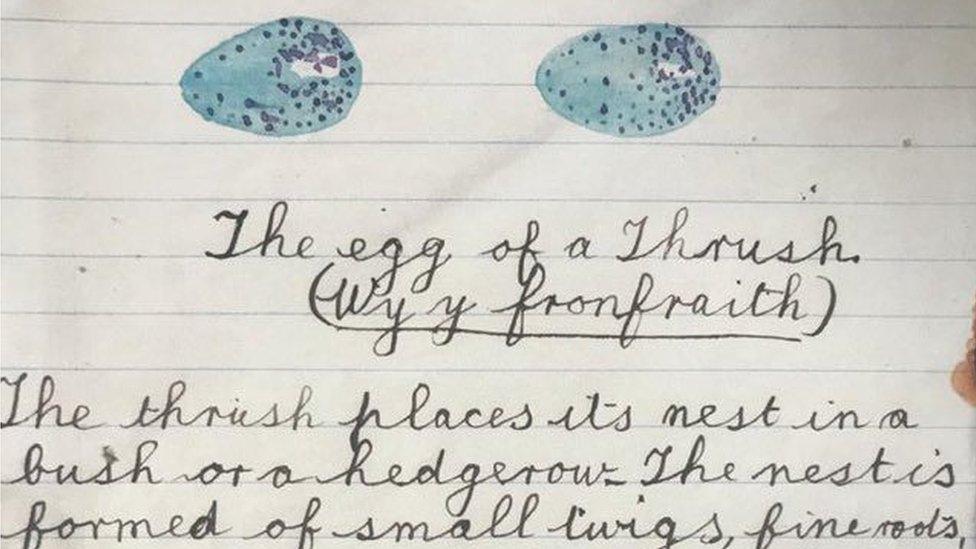 The egg of a Thrush.
(Wy y fronfraith)
The thrush places its nest in a
bush or a hedgerow. The nest is
formed of small twigs, fine roots,